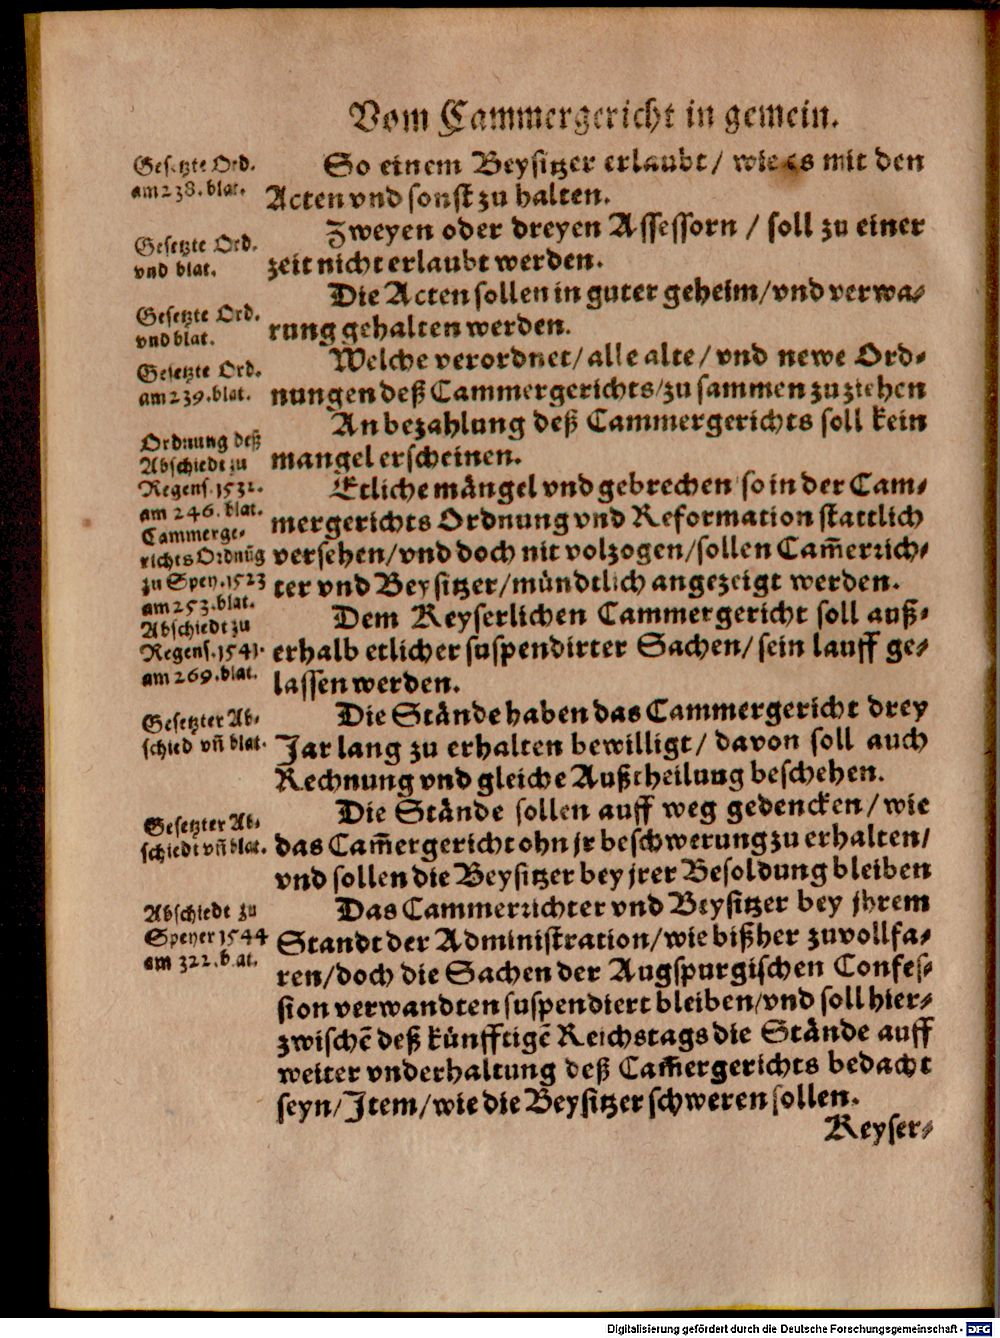 Vom Cammergericht in gemein.
Gesetzte Ord.
am 238. blat.
So einem Beysitzer erlaubt/ wie es mit den
Acten vnd sonst zu halten.
Gesetzte Ord.
vnd blat.
Zweyen oder dreyen Assessorn / soll zu einer
zeit nicht erlaubt werden.
Gesetzte Ord.
vnd blat.
Die Acten sollen in guter geheim/ vnd verwa⸗
rung gehalten werden.
Gesetzte Ord.
am 239. blat.
Welche verordnet/ alle alte/ vnd newe Ord⸗
nungen deß Cammergerichts/ zu sammen zu ziehen
Ordnung deß
Abschiedt zu
Regens. 1532.
am 246. blat.
An bezahlung deß Cammergerichts soll kein
mangel erscheinen.
Cammerge⸗
richts Ordnũg
zu Spey. 1523
am 253. blat.
Etliche mängel vnd gebrechen so in der Cam⸗
mergerichts Ordnung vnd Reformation stattlich
versehen/ vnd doch nit volzogen/ sollen Cam̃errich⸗
ter vnd Beysitzer/ mündtlich angezeigt werden.
Abschiedt zu
Regens. 1541.
am 269. blat.
Dem Keyserlichen Cammergericht soll auß⸗
erhalb etlicher suspendirter Sachen/ sein lauff ge⸗
lassen werden.
Gesetzter Ab⸗
schied vñ blat.
Die Stände haben das Cammergericht drey
Jar lang zu erhalten bewilligt/ davon soll auch
Rechnung vnd gleiche Außtheilung beschehen.
Gesetzter Ab⸗
schiedt vñ blat.
Die Stände sollen auff weg gedencken/ wie
das Cam̃ergericht ohn jr beschwerung zu erhalten/
vnd sollen die Beysitzer bey jrer Besoldung bleiben
Abschiedt zu
Speyer 1544
am 322. blat.
Das Cammerrichter vnd Beysitzer bey jhrem
Standt der Administration/ wie bißher zuvollfa⸗
ren/ doch die Sachen der Augspurgischen Confes⸗
sion verwandten suspendiert bleiben/ vnd soll hier⸗
zwischẽ deß künfftigẽ Reichstags die Stände auff
weiter vnderhaltung deß Cam̃ergerichts bedacht
seyn/ Item/ wie die Beysitzer schweren sollen.
Keyser⸗
Digitalisierung gefördert durch die Deutsche Forschungsgemeinschaft - DFG